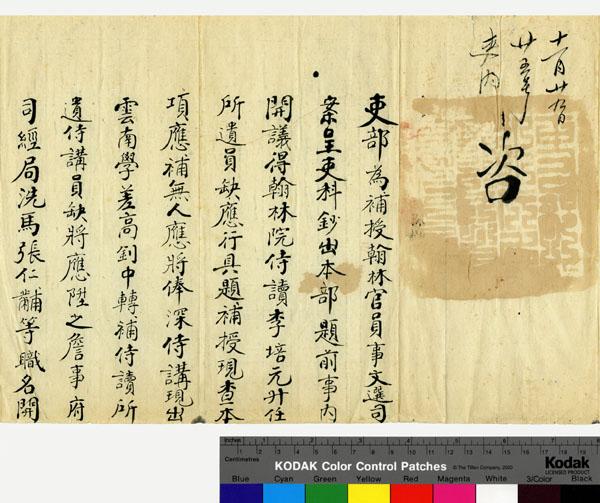 咨
吏部為補授翰林官員事文選司
案呈吏科鈔出本部題前事内
開議得翰林院侍讀李培元升任
所遺員缺應行具題補授現查本
項應補無人應將俸深侍講現出
雲南學差高釗中轉補侍讀所
遺侍講員缺將應陞之詹事府
司經局洗馬張仁黼等職名開
Inches
Centimetres
KODAK Color Control Patches
© The Tiffen Company, 2000
Kodak
LICENSED PRODUCT
Blue Cyan Green Yellow Red Magenta White 3/Color Black